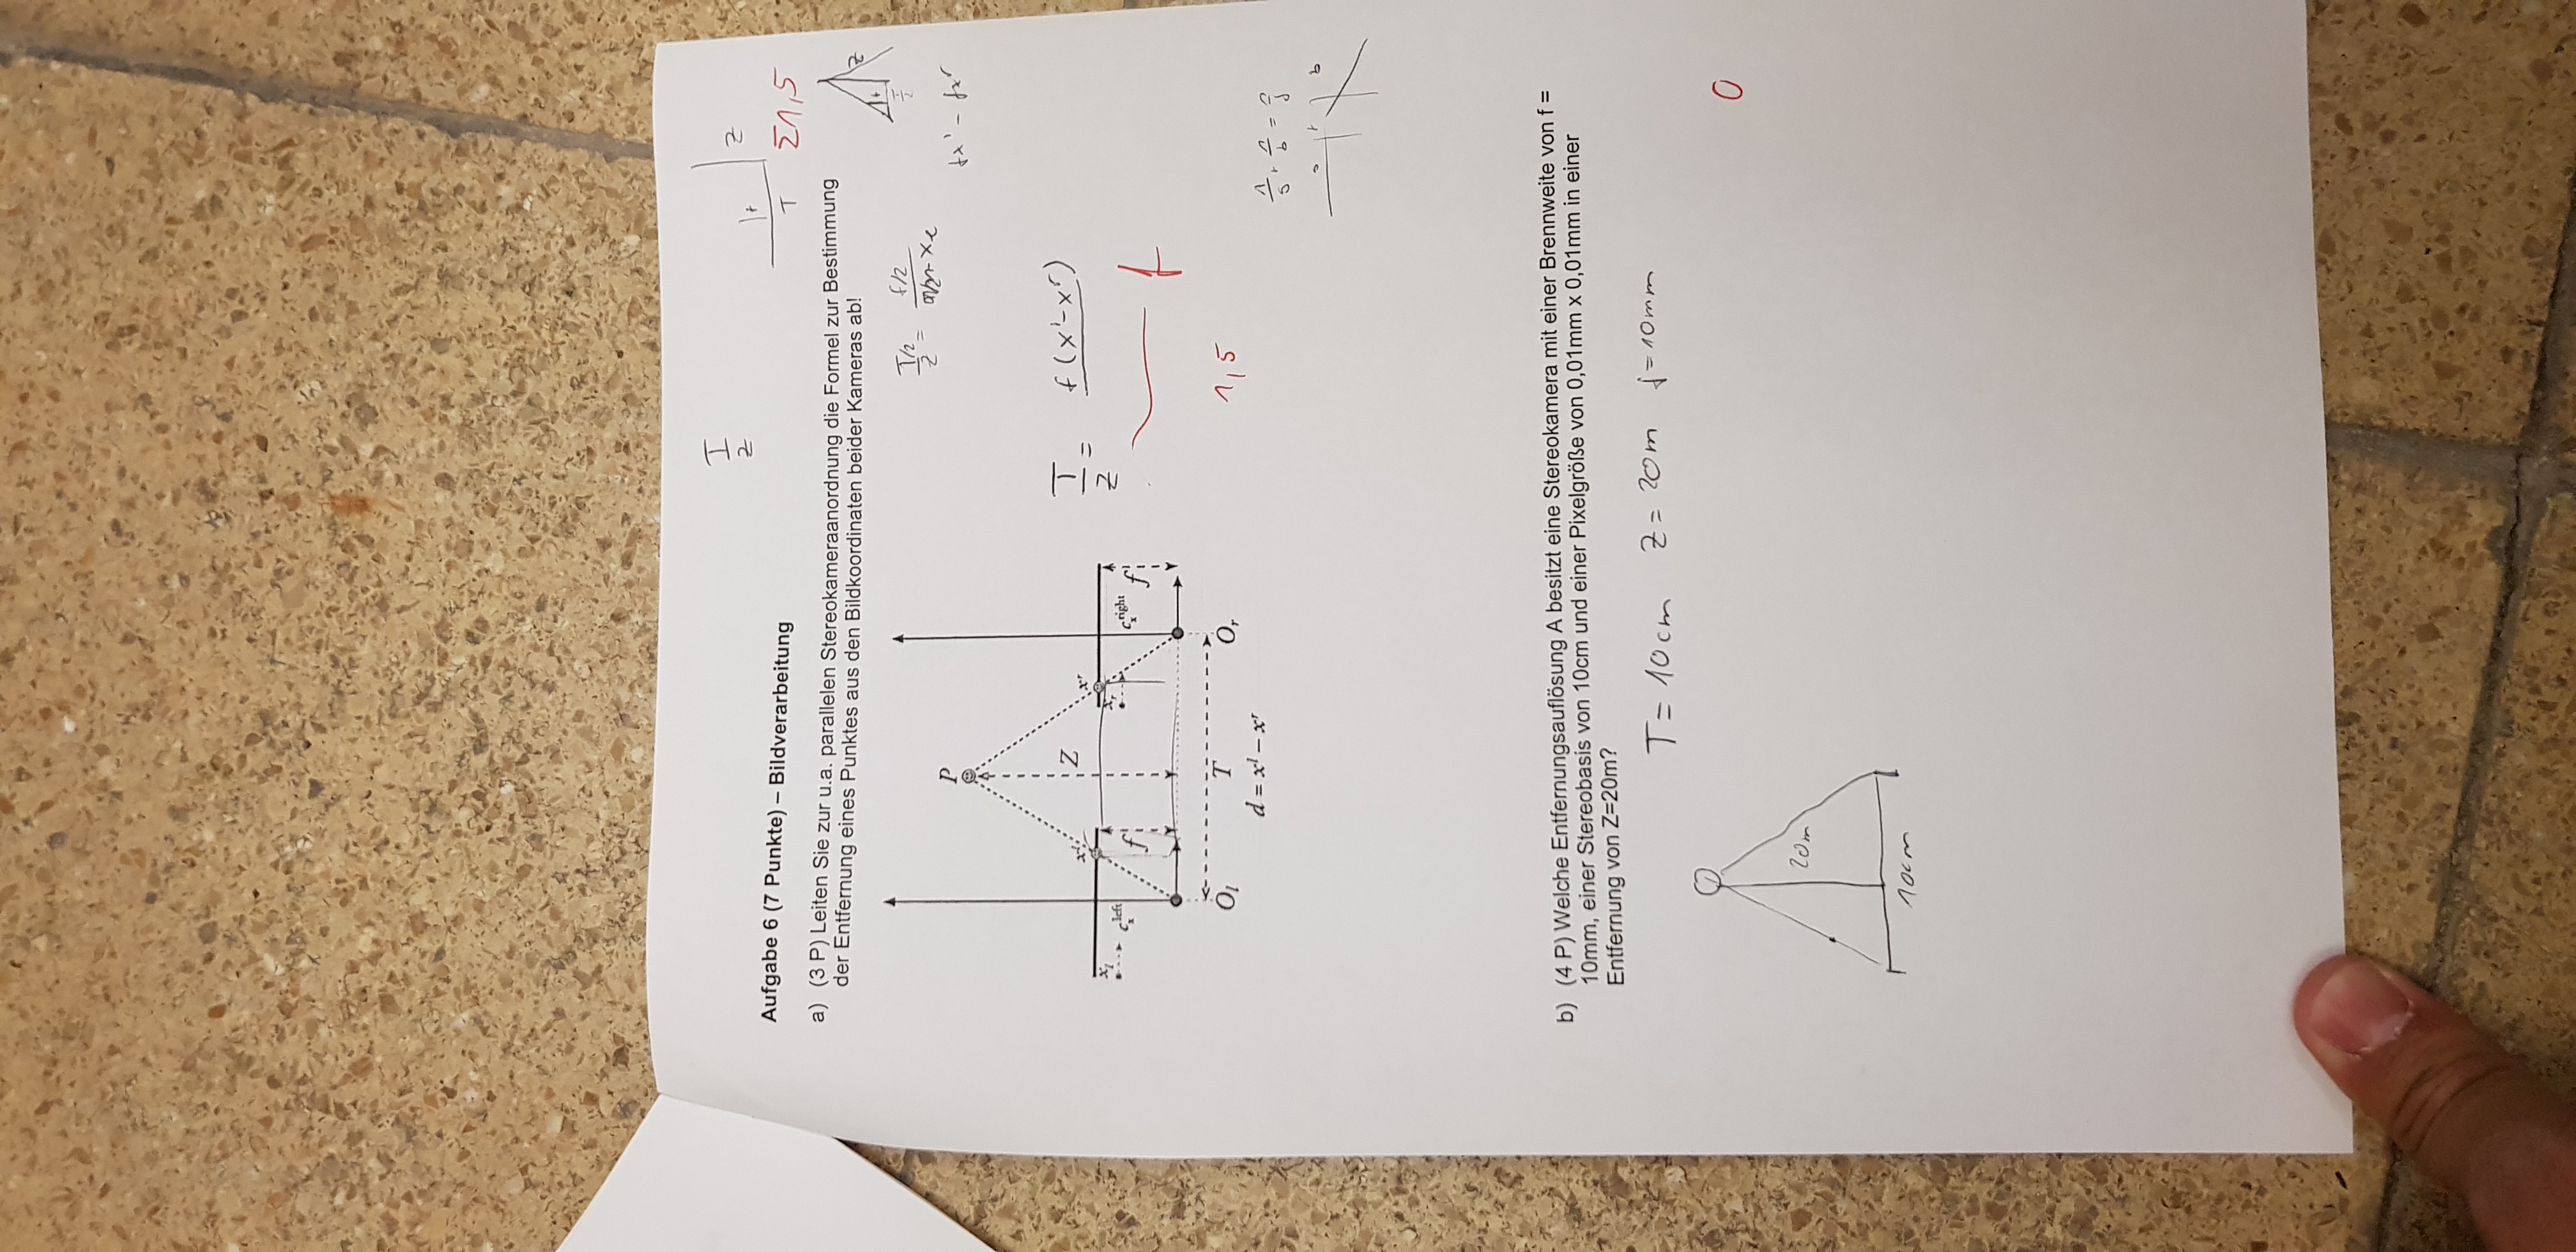 T
Z
Z
T
Σ1,5
Aufgabe 6 (7 Punkte) – Bildverarbeitung
a) (3 P) Leiten Sie zur u.a. parallelen Stereokameraanordnung die Formel zur Bestimmung
der Entfernung eines Punktes aus den Bildkoordinaten beider Kameras ab!
Z
T/2
Z
=
f/2
P
Z
T
Z
= f(x^l-x^r)
x^l
x^r
x_l
c_x^left
f
x_r
c_x^right
f
f
1,5
O_l
T
O_r
d = x^l – x^r
b) (4 P) Welche Entfernungsauflösung A besitzt eine Stereokamera mit einer Brennweite von f =
10mm, einer Stereobasis von 10cm und einer Pixelgröße von 0,01mm x 0,01mm in einer
Entfernung von Z=20m?
T = 10cm Z = 20m f=10mm
0
20m
10cm